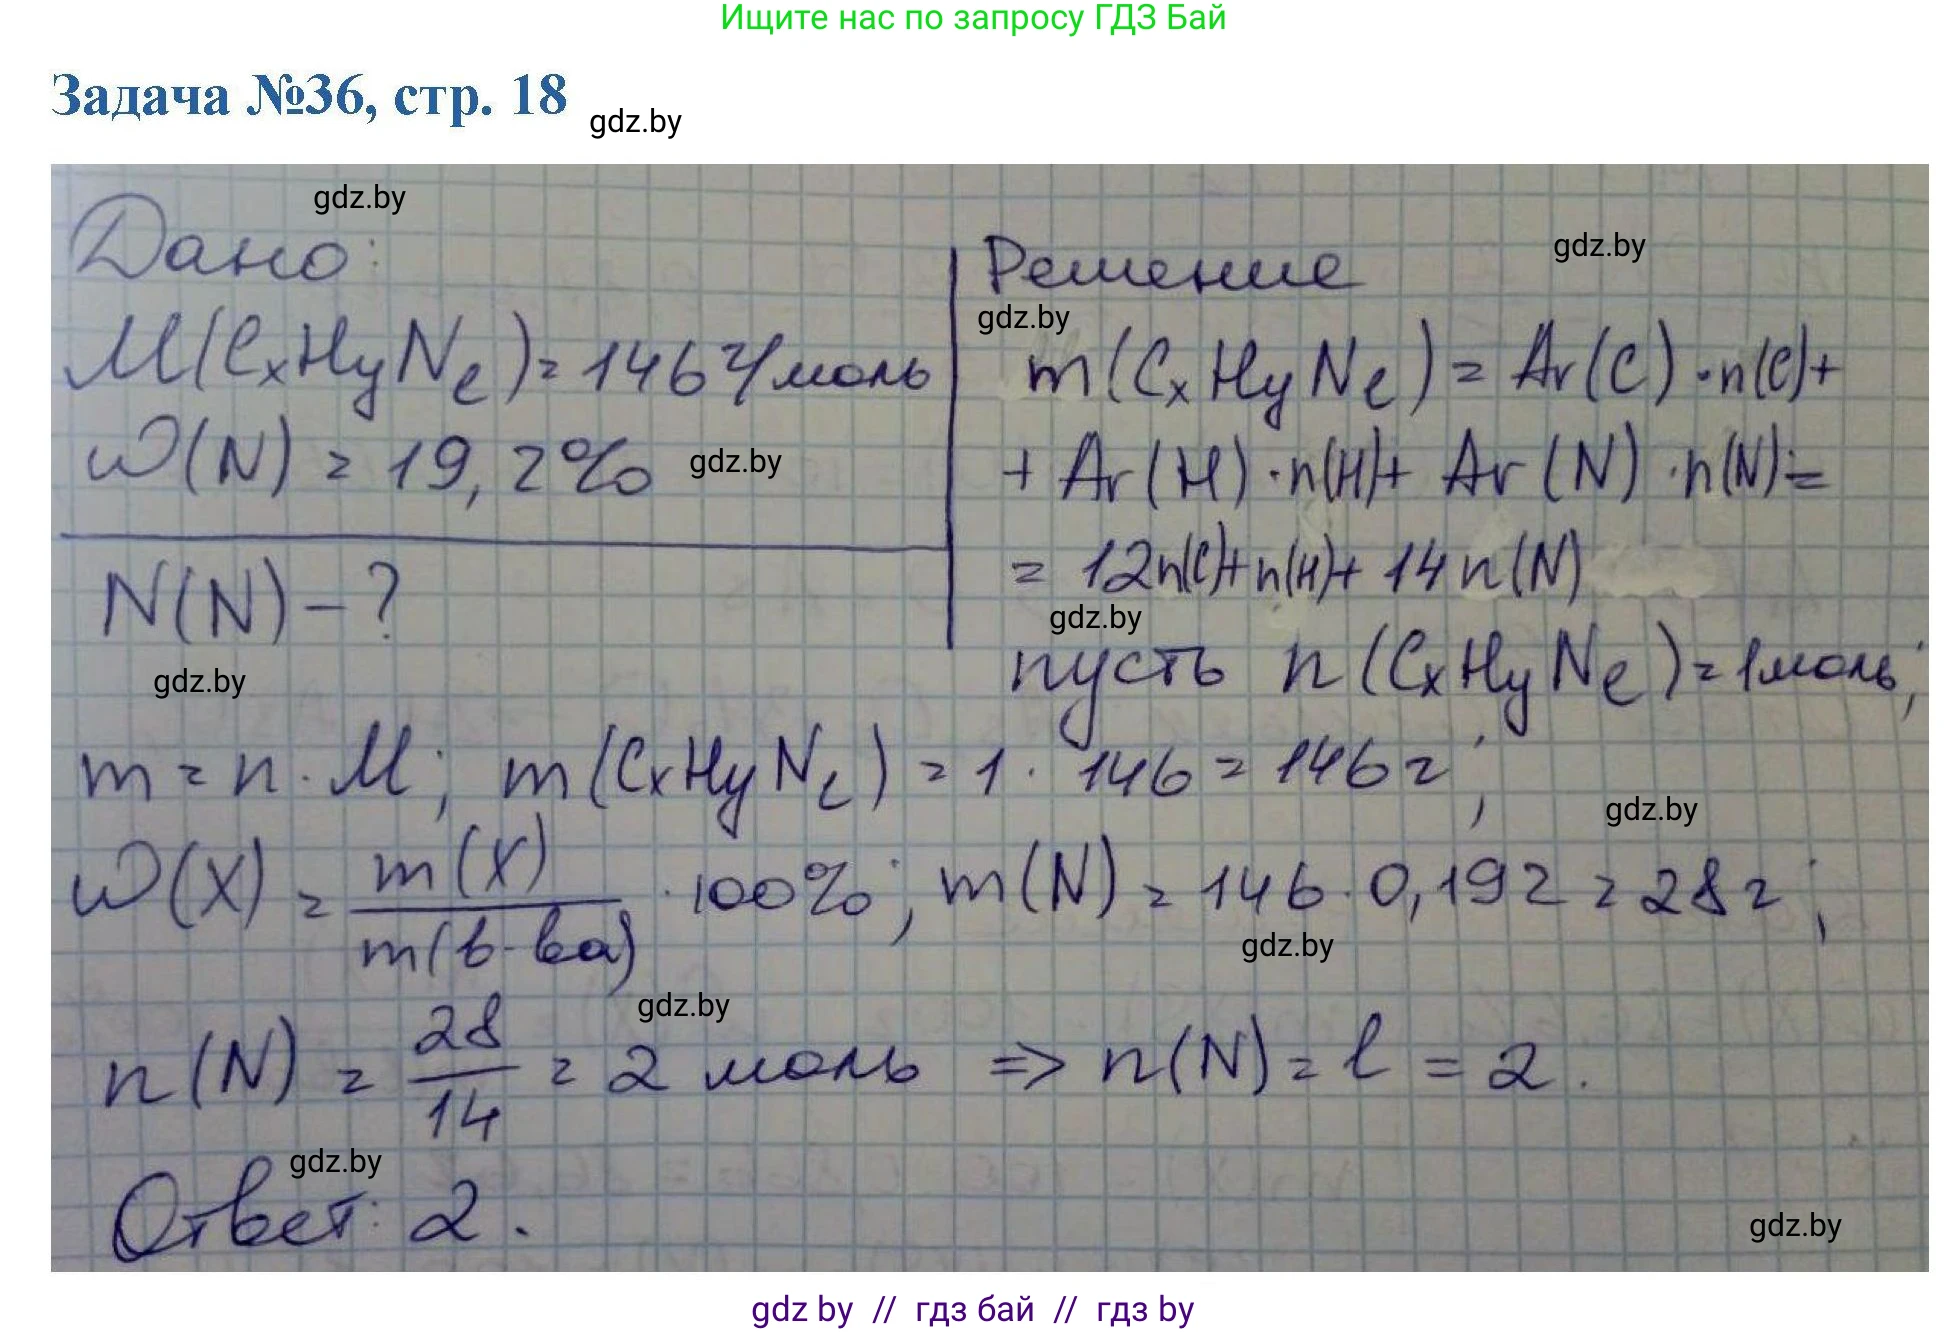 Ищите нас по запросу ГДЗ Бай
Задача №36, стр. 18
gdz.by
gdz.by
Дано:
M(CxHyNl) = 146 г/моль
gdz.by
W(N) = 19,2%
N(N) - ?
gdz.by
Решение
gdz.by
gdz.by
m(CxHyNl) = Ar(C) · n(C) +
+ Ar(H) · n(H) + Ar(N) · n(N) =
= 12n(C) + n(H) + 14n(N)
gdz.by
пусть n(CxHyNl) = 1моль;
m = n · M; m(CxHyNl) = 1 · 146 = 146г;
gdz.by
W(X) = m(X) / m(в-ва) · 100%; m(N) = 146 · 0,192 = 28г;
gdz.by
gdz.by
n(N) = 28/14 = 2 моль => n(N) = l = 2.
gdz.by
Ответ: 2.
gdz.by
gdz by // гдз бай // гдз by